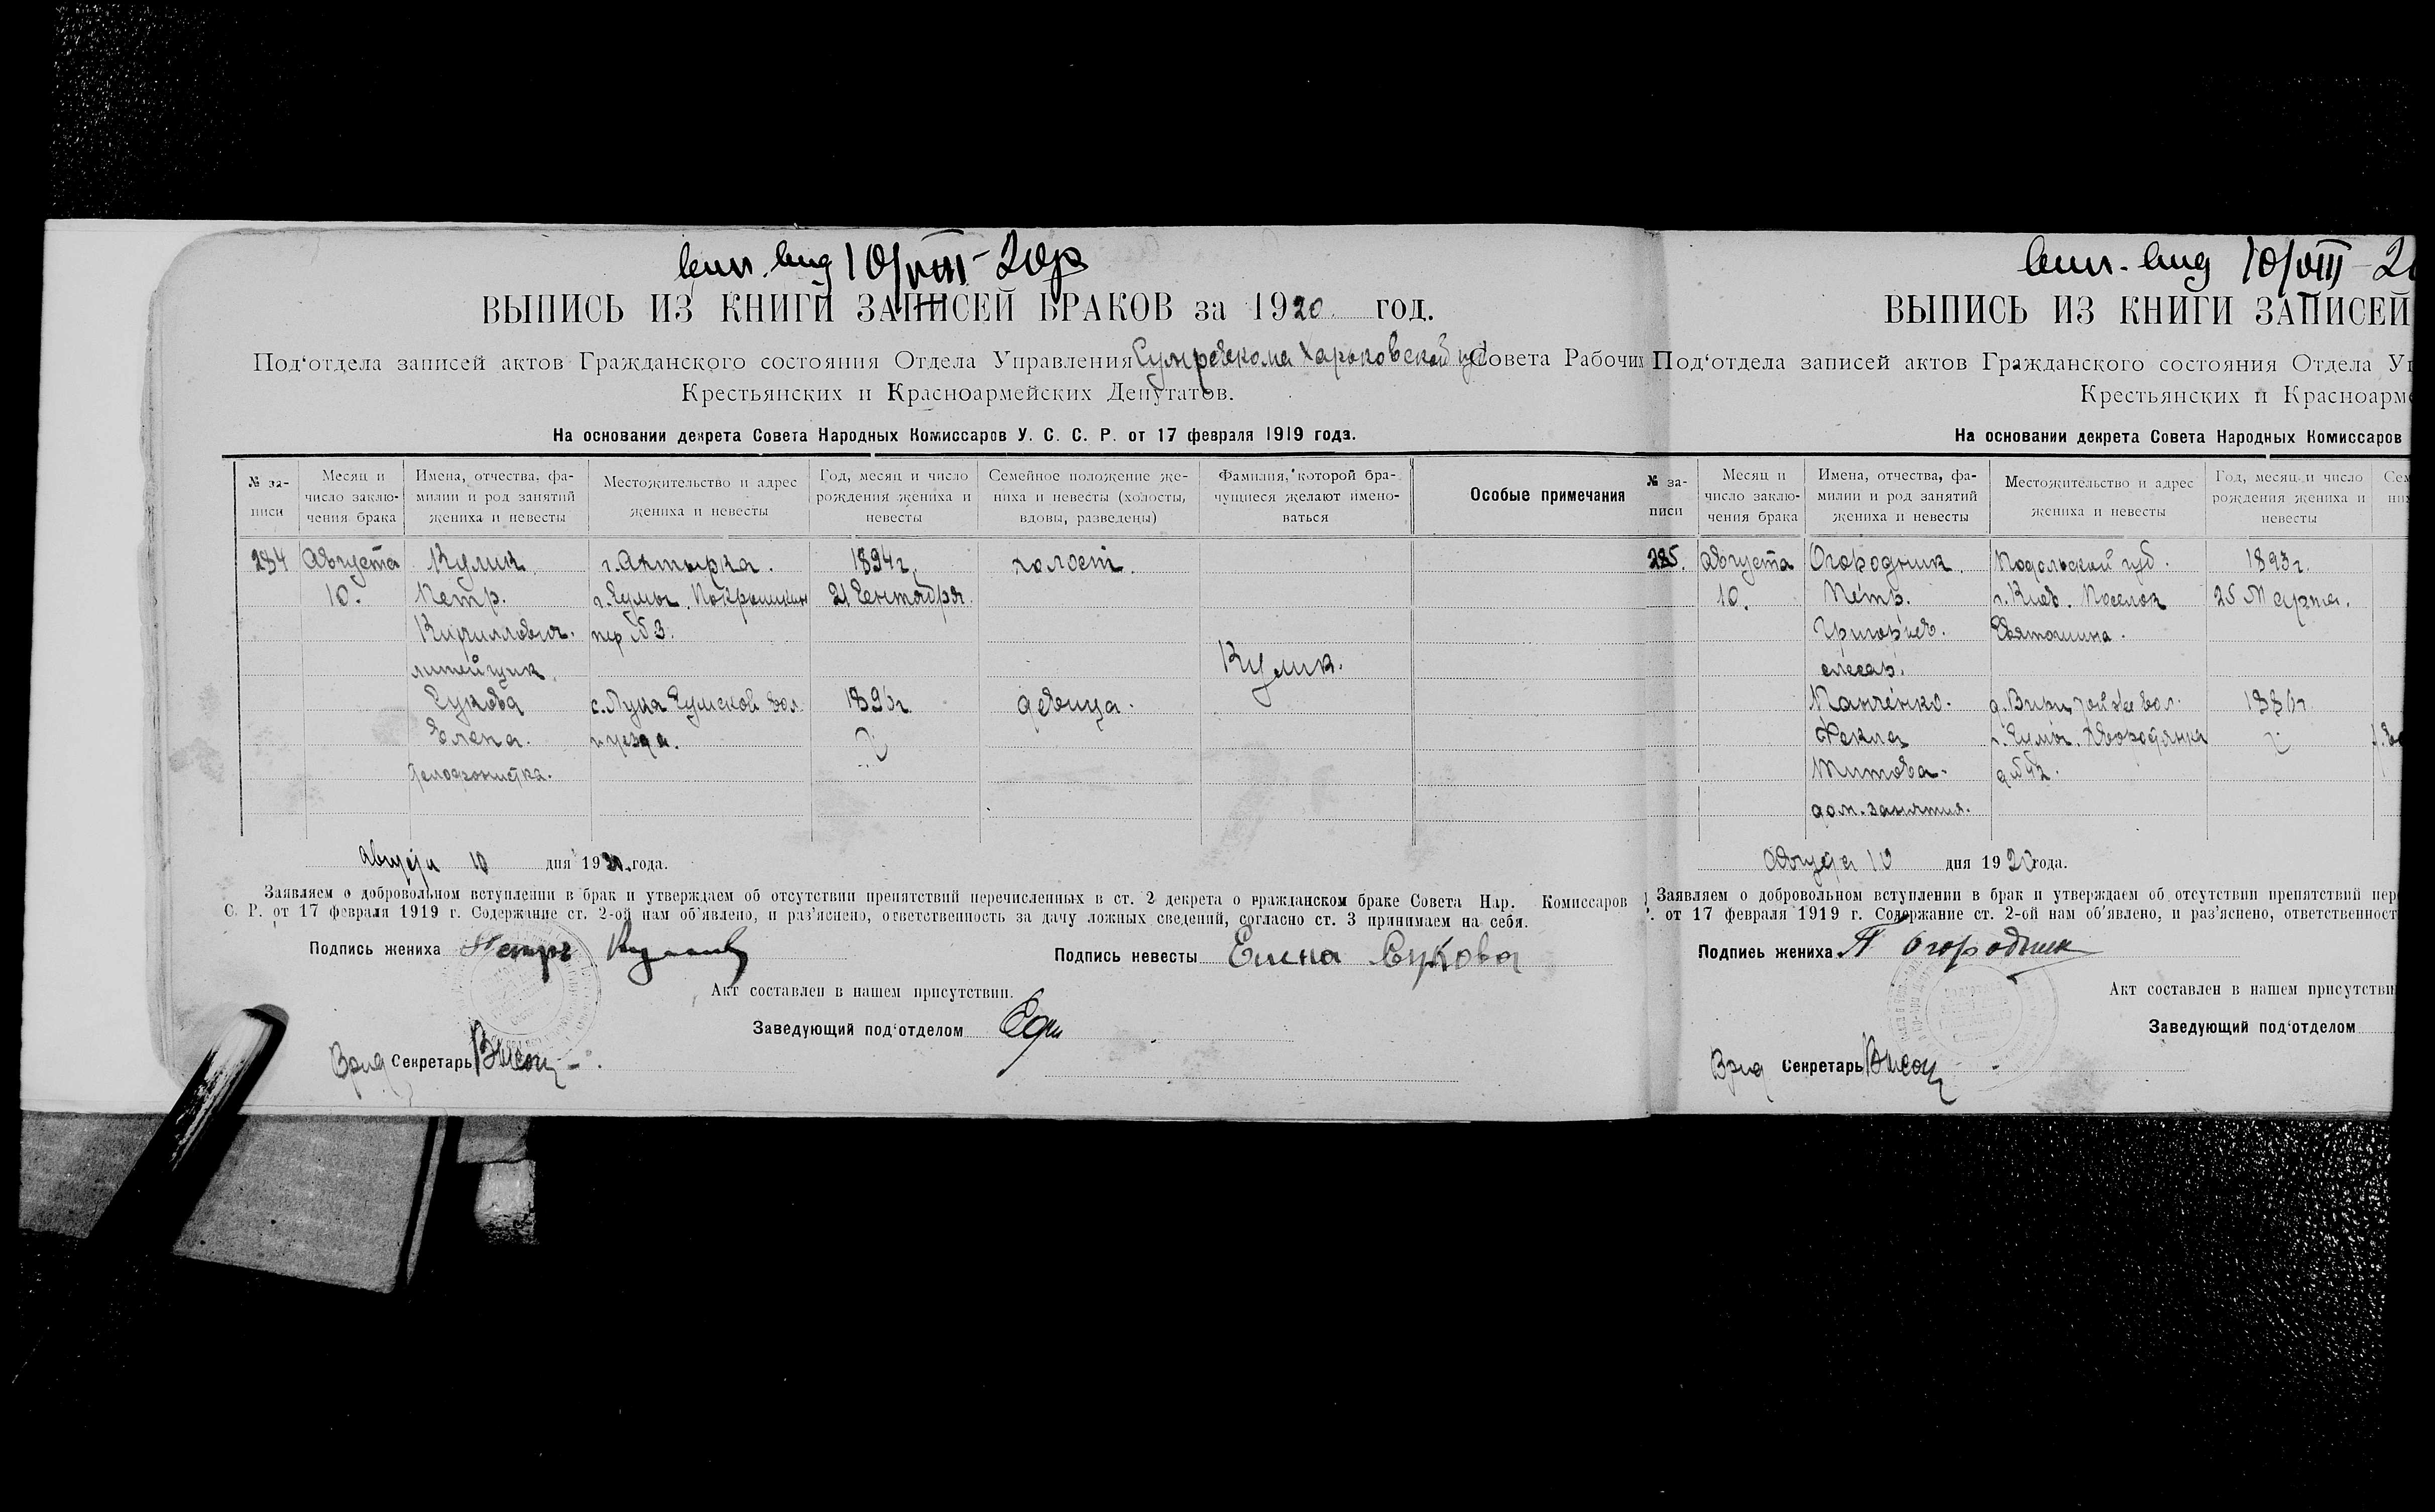 вып. выд 10/VIII-20г
ВЫПИСЬ ИЗ КНИГИ ЗАПИСЕЙ БРАКОВ за 1920 год.
Под‘отдела записей актов Гражданского состояния Отдела Управления Сумревкома Харьковской губ Совета Рабочих
Крестьянских и Красноармейских Депутатов.
На основании декрета Совета Народных Комиссаров У. С. С. Р. от 17 февраля 1919 года.
№ за-писи
Месяц и число заклю-чения брака
Имена, отчества, фа-милии и род занятий жениха и невесты
Местожительство и адрес жениха и невесты
Год, месяц и число рождения жениха и невесты
Семейное положение же-ниха и невесты (холосты, вдовы, разведены)
Фамилия, которой бра-чущиеся желают имено-ваться
Особые примечания
284 Августа Кулик г. Ахтырка. 1894 г. холост.
10. Петр. г. Сумы. Покровский 21 Сентября
Кириллович. пер № 3.
литейщик. Кулик.
Сукова с. Лука Сумской вол. 1896 г девица.
Елена. и уезда.
телефонистка.
Августа 10 дня 1920 года.
Заявляем о добровольном вступлении в брак и утверждаем об отсутствии препятствий перечисленных в ст. 2 декрета о гражданском браке Совета Нар. Комиссаров
С. Р. от 17 февраля 1919 г. Содержание ст. 2-ой нам об‘явлено, и раз‘яснено, ответственность за дачу ложных сведений, согласно ст. 3 принимаем на себя.
Подпись жениха Петръ Подпись невесты Елена Сукова
Акт составлен в нашем присутствии.
Заведующий под‘отделом
Врид Секретарь
вып. выд 10/VIII-2
ВЫПИСЬ ИЗ КНИГИ ЗАПИСЕЙ
Под‘отдела записей актов Гражданского состояния Отдела Уп
Крестьянских и Красноарме
На основании декрета Совета Народных Комиссаров
№ за-писи
Месяц и число заклю-чения брака
Имена, отчества, фа-милии и род занятий жениха и невесты
Местожительство и адрес жениха и невесты
Год, месяц и число рождения жениха и невесты
285. Августа Огородник Подольской губ. 1893 г.
10. Петр. г. Киев. Поселок 25 Марта.
Григорьев. Святошина.
слесарь.
Панченко. вол. 1886 г
Фекла г. Сумы.
Титова.
дом. занятия.
Августа 10 дня 1920 года.
Заявляем о добровольном вступлении в брак и утверждаем об отсутствии препятствий пере
. от 17 февраля 1919 г. Содержание ст. 2-ой нам об‘явлено, и раз‘яснено, ответственност
Подпись жениха П Огородник
Акт составлен в нашем присутствии
Заведующий под‘отделом
Врид Секретарь